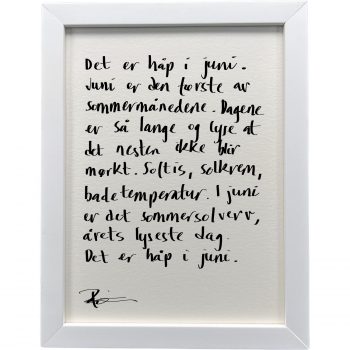 Det er håp i juni.
Juni er den første av
sommermånedene. Dagene
er så lange og lyse at
det nesten ikke blir
mørkt. Softis, solkrem,
badetemperatur. I juni
er det sommersolverv,
årets lyseste dag.
Det er håp i juni.